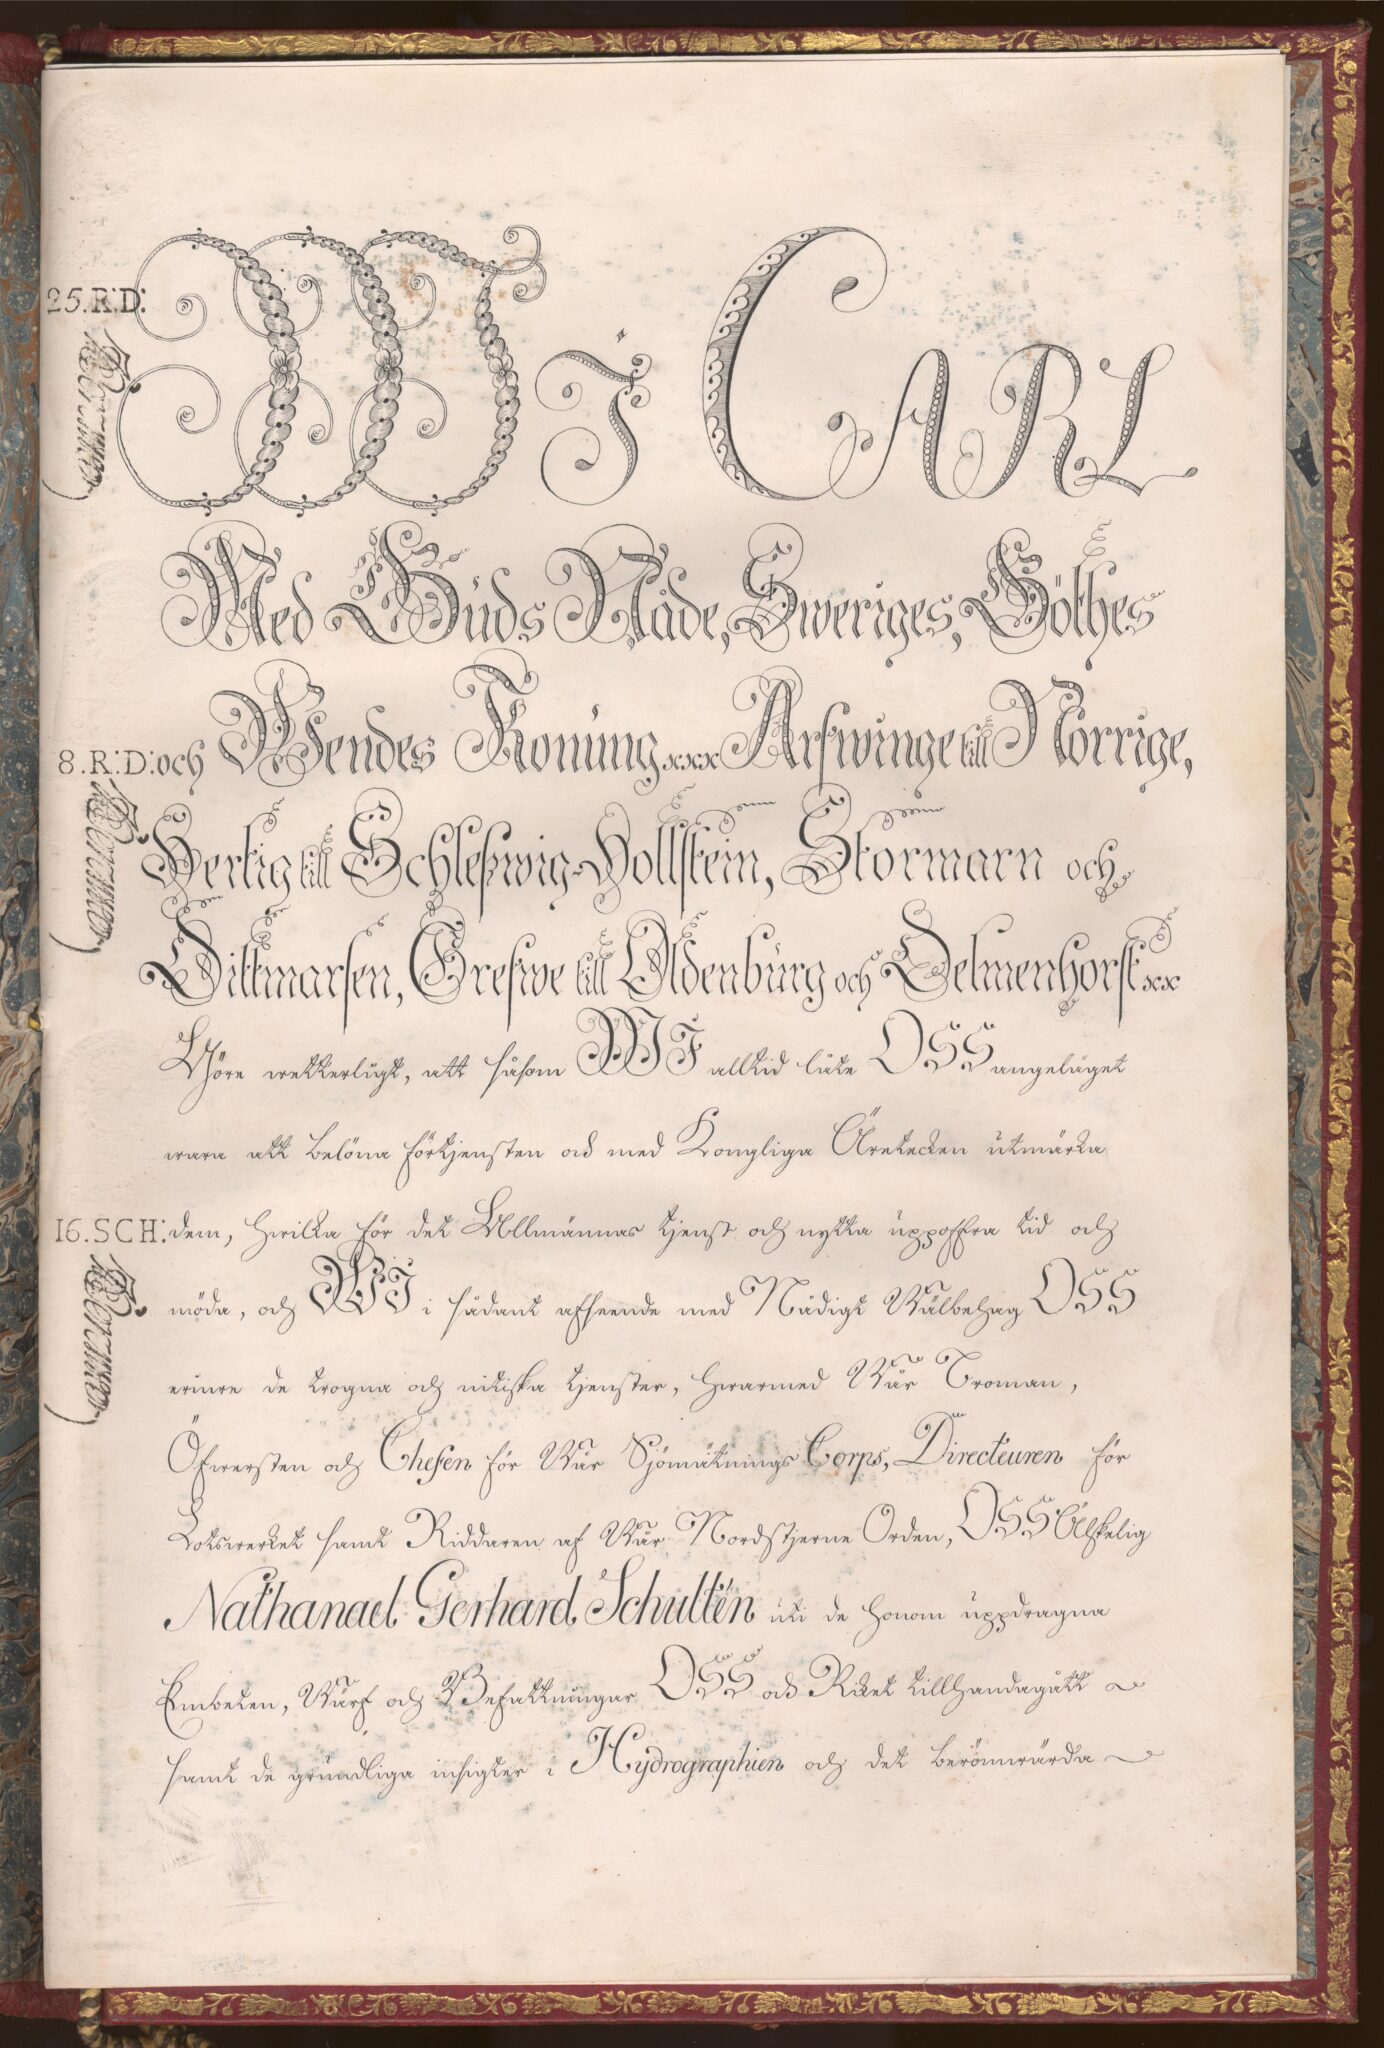 25.R:D:
WJ CARL
Med Gŭds Nåde, Sweriges, Göthes
8.R:D: och Wendes Konŭng xxx Arfwinge till Norrige,
Hertig till Schleßwig-Hollstein, Stormarn och
Dittmarsen, Grefwe till Oldenbŭrg och Delmenhorst xx
Göre wetterligt, att såsom WJ alltid låte OSS angeläget
wara att belöna förtjensten och med Kongliga Äretecken ŭtmärka
16.SCH: dem, hwilka för det Allmännas tjenst och nytta ŭppoffra tid och
möda, och WJ i sådant afseende med Nådigt Wälbehag OSS
erinre de trogna och nitiska tjenster, hwarmed Wår Troman,
Öfwersten och Chefen för Wår Sjömätnings Corps, Directeuren för
Lotswerket samt Riddaren af Wår Nordstjerne Orden, OSS Älskelig
Nathanael Gerhard Schultén ŭti de honom ŭppdragna
Embeten, Wärf och Befattningar OSS och Riket tillhandagått
samt de grŭndliga insigter i Hydrographien och det berömwärda